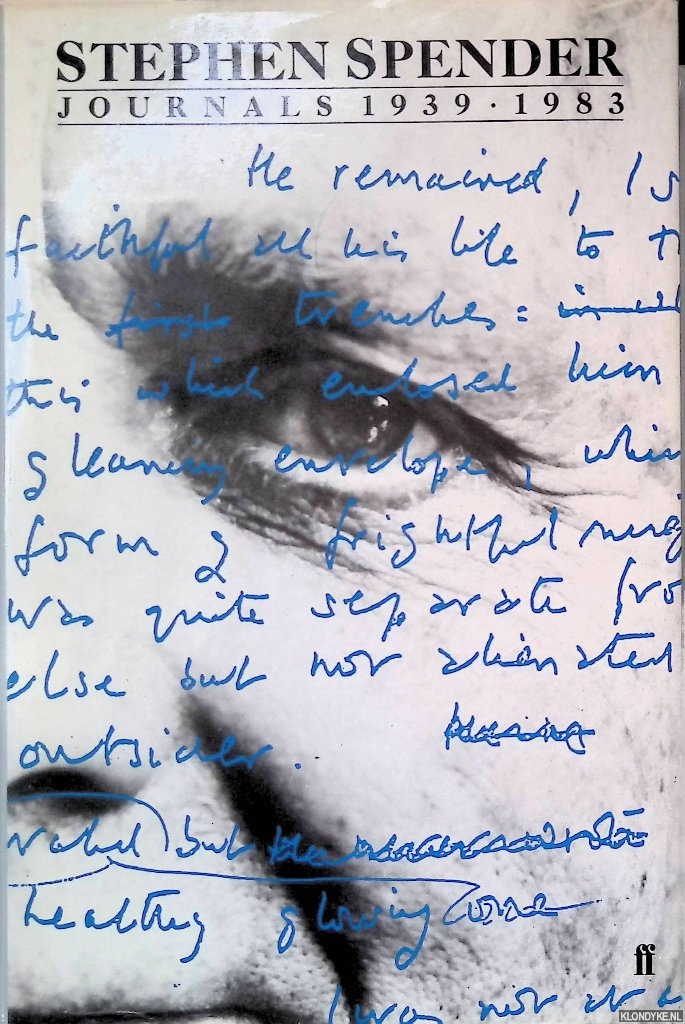 STEPHEN SPENDER
JOURNALS 1939 · 1983
He remained, Is
faithful all his life to t
the first trenches:
this which enclosed him
gleaming envelope, whi
form of frightful
was quite separate fro
else but not alienated
outsider.
but
healthy glowing
I was not at a
ff
KLONDYKE.NL